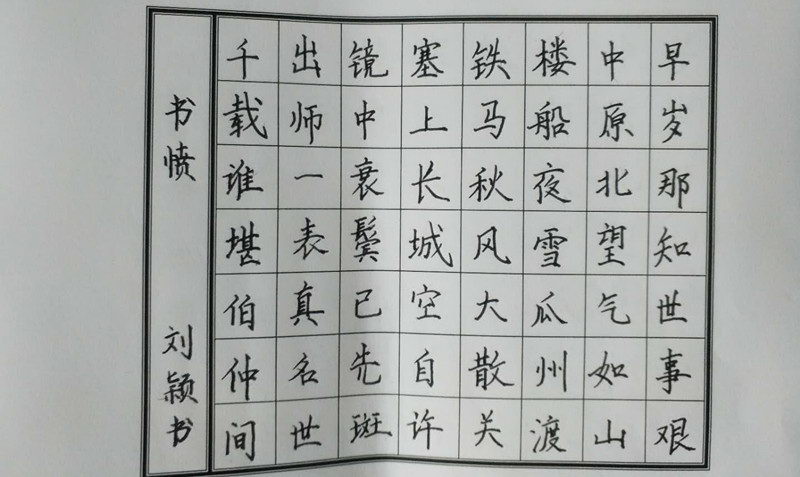 早岁那知世事艰
中原北望气如山
楼船夜雪瓜州渡
铁马秋风大散关
塞上长城空自许
镜中衰鬓已先斑
出师一表真名世
千载谁堪伯仲间
书愤
刘颖书